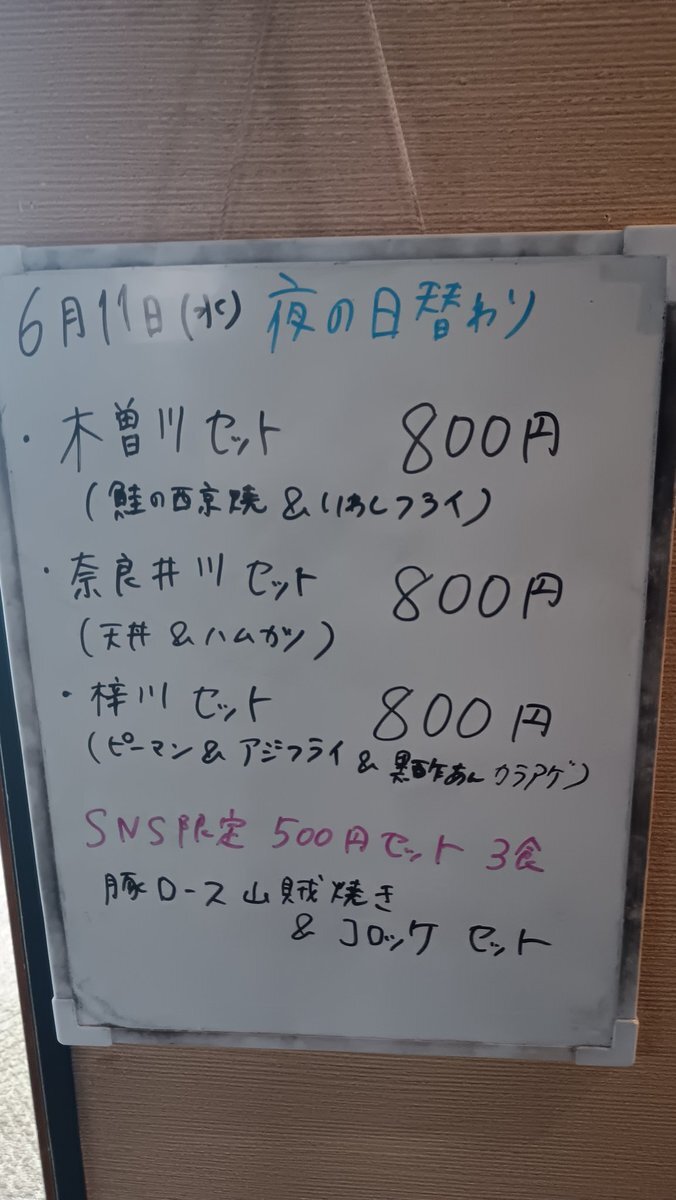 6月11日(水) 夜の日替わり
・木曽川セット 800円
(鮭の西京焼&いわしフライ)
・奈良井川セット 800円
(天丼&ハムカツ)
・梓川セット 800円
(ピーマン&アジフライ&黒酢あんカラアゲ)
SNS限定 500円セット 3食
豚ロース山賊焼き
&コロッケセット